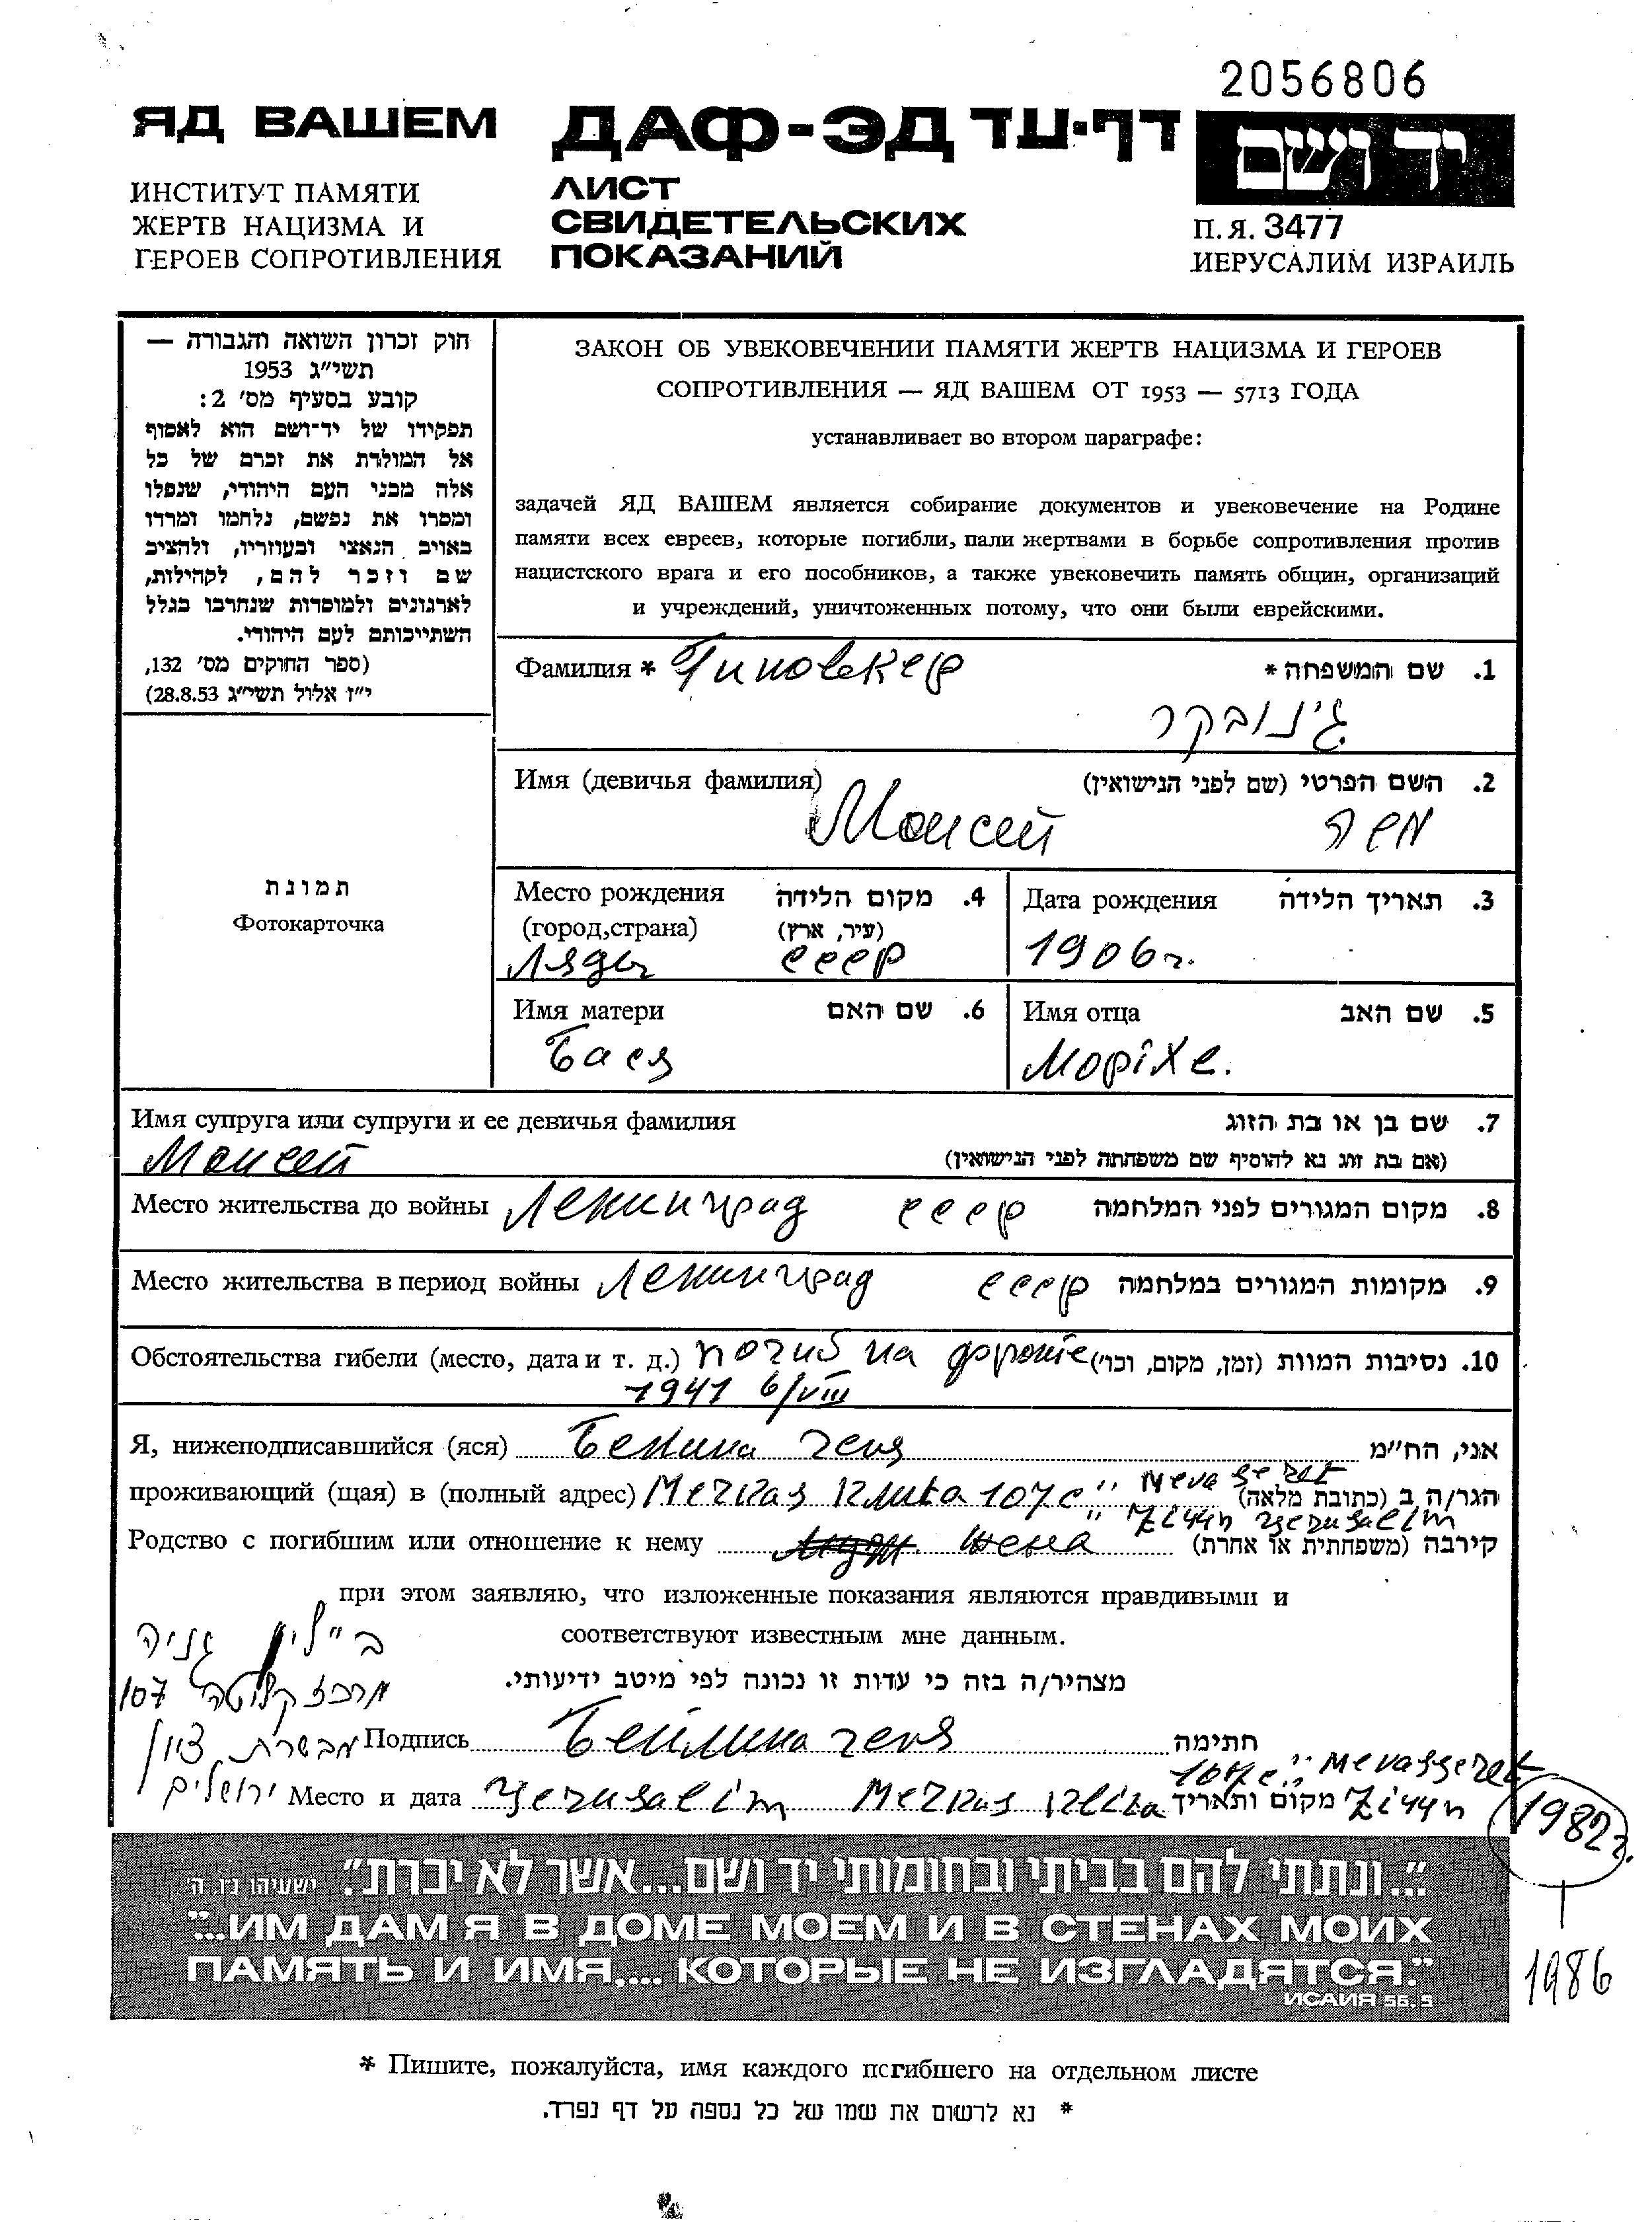 2056806
ЯД ВАШЕМ
ИНСТИТУТ ПАМЯТИ
ЖЕРТВ НАЦИЗМА И
ГЕРОЕВ СОПРОТИВЛЕНИЯ
ДАФ-ЭД דף-עד
ЛИСТ
СВИДЕТЕЛЬСКИХ
ПОКАЗАНИЙ
יד ושם
П.Я. 3477
ИЕРУСАЛИМ ИЗРАИЛЬ
חוק זכרון השואה והגבורה —
תשי״ג 1953
קובע בסעיף מס׳ 2:
תפקידו של יד־ושם הוא לאסוף
אל המולדת את זכרם של כל
אלה מבני העם היהודי, שנפלו
ומסרו את נפשם, נלחמו ומרדו
באויב הנאצי ובעוזריו, ולהציב
שם וזכר להם, לקהילות,
לארגונים ולמוסדות שנחרבו בגלל
השתייכותם לעם היהודי.
(ספר החוקים מס׳ 132,
י״ז אלול תשי״ג 28.8.53)
ЗАКОН ОБ УВЕКОВЕЧЕНИИ ПАМЯТИ ЖЕРТВ НАЦИЗМА И ГЕРОЕВ
СОПРОТИВЛЕНИЯ — ЯД ВАШЕМ ОТ 1953 — 5713 ГОДА
устанавливает во втором параграфе:
задачей ЯД ВАШЕМ является собирание документов и увековечение на Родине
памяти всех евреев, которые погибли, пали жертвами в борьбе сопротивления против
нацистского врага и его пособников, а также увековечить память общин, организаций
и учреждений, уничтоженных потому, что они были еврейскими.
Фамилия * Гиновкер 1. שם המשפחה *
גינובקר
Имя (девичья фамилия) 2. השם הפרטי (שם לפני הנישואין)
Моисей משה
תמונת
Фотокарточка
Место рождения 4. מקום הלידה
(город,страна) (עיר, ארץ)
Ляды СССР
Дата рождения 3. תאריך הלידה
1906г.
Имя матери 6. שם האם
Бася
Имя отца 5. שם האב
Моріхе.
Имя супруга или супруги и ее девичья фамилия 7. שם בן או בת הזוג
Моисей (אם בת זוג נא להוסיף שם משפחתה לפני הנישואין)
Место жительства до войны Ленинград СССР 8. מקום המגורים לפני המלחמה
Место жительства в период войны Ленинград СССР 9. מקומות המגורים במלחמה
Обстоятельства гибели (место, дата и т. д.) погиб на фронте 10. נסיבות המוות (זמן, מקום, וכו׳)
1941 6/VIII
Я, нижеподписавшийся (яся) Белина Геня אני, הח״מ
проживающий (щая) в (полный адрес) Merkas Klita 107 c" Mevaseret הגר/ה ב (כתובת מלאה)
" Ziyyn Yerusalim
Родство с погибшим или отношение к нему жена קירבה (משפחתית או אחרת)
при этом заявляю, что изложенные показания являются правдивыми и
соответствуют известным мне данным.
מצהיר/ה בזה כי עדות זו נכונה לפי מיטב ידיעותי.
בילין גניה
מרכז קליטה 107
מבשרת ציון
ירושלים
Подпись Бейлина Геня חתימה
107 c" Mevasseret
Место и дата Yerusalim Merkas Klita מקום ותאריך Ziyyn
1982г.
1986
"...ונתתי להם בביתי ובחומותי יד ושם...אשר לא יכרת". ישעיהו נ״ו, ה׳
"...ИМ ДАМ Я В ДОМЕ МОЕМ И В СТЕНАХ МОИХ
ПАМЯТЬ И ИМЯ,... КОТОРЫЕ НЕ ИЗГЛАДЯТСЯ."
ИСАИЯ 56. 5
* Пишите, пожалуйста, имя каждого погибшего на отдельном листе
* נא לרשום את שמו של כל נספה על דף נפרד.